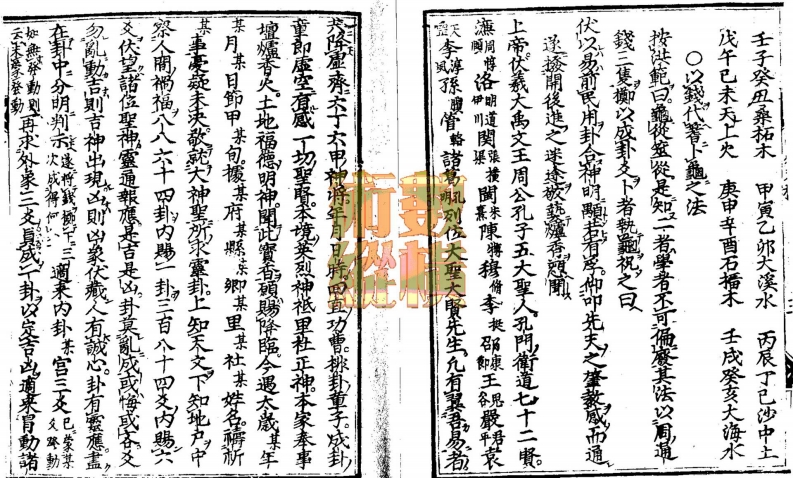 壬子癸丑桑柘木　甲寅乙卯大溪水　丙辰丁巳沙中土
戊午己未天上火　庚申辛酉石榴木　壬戌癸亥大海水
○以錢代蓍卜龜之法
按洪範曰龜從筮從是知二者學者不可偏廢其法以周通
錢三隻擲以成卦爻卜者執龜祝之曰
伏以易前民用卦合神明顒若有孚仰叩先天之肇教感而通
遂擴開後進之迷途敬爇爐香冠聞
上帝伏羲大禹文王周公孔子五大聖人孔門衛道七十二賢
濂周惇頤洛明道伊川関張橫渠閩朱熹陳摶穆脩李挺邵康節王思嚴君平袁
天罡李淳風孫臏管輅諸葛孔明列位大聖大賢先生凡有翼吾易者
共降虛齋六丁六甲神將年月日時四直功曹排卦童子成卦
童郎虛空有感一切聖賢本境英烈神祗里社正神本家奉事
壇爐香火土地福德明神聞此寶香頓賜降臨今遇太歲某年
某月某日節甲某旬援某府某縣某鄉某里某社某姓名禱祈
某事憂疑未決敬就大神聖所求靈卦上知天文下知地戶中
察人間禍福八八六十四卦內賜一卦三百八十四爻內賜六
爻伏望諸位聖神靈通報應是吉是凶卦莫亂成或悔或吝爻
勿亂動吉則吉神出現凶則凶象伏藏人有誠心卦有靈應盡
在卦中分明判示遂將錢擲下三次成得何宮適來内卦某宮三爻已蒙某爻發動
如無發動則云未蒙發動再求外象三爻員成一卦以定吉凶適來冒動諸
術數縱橫